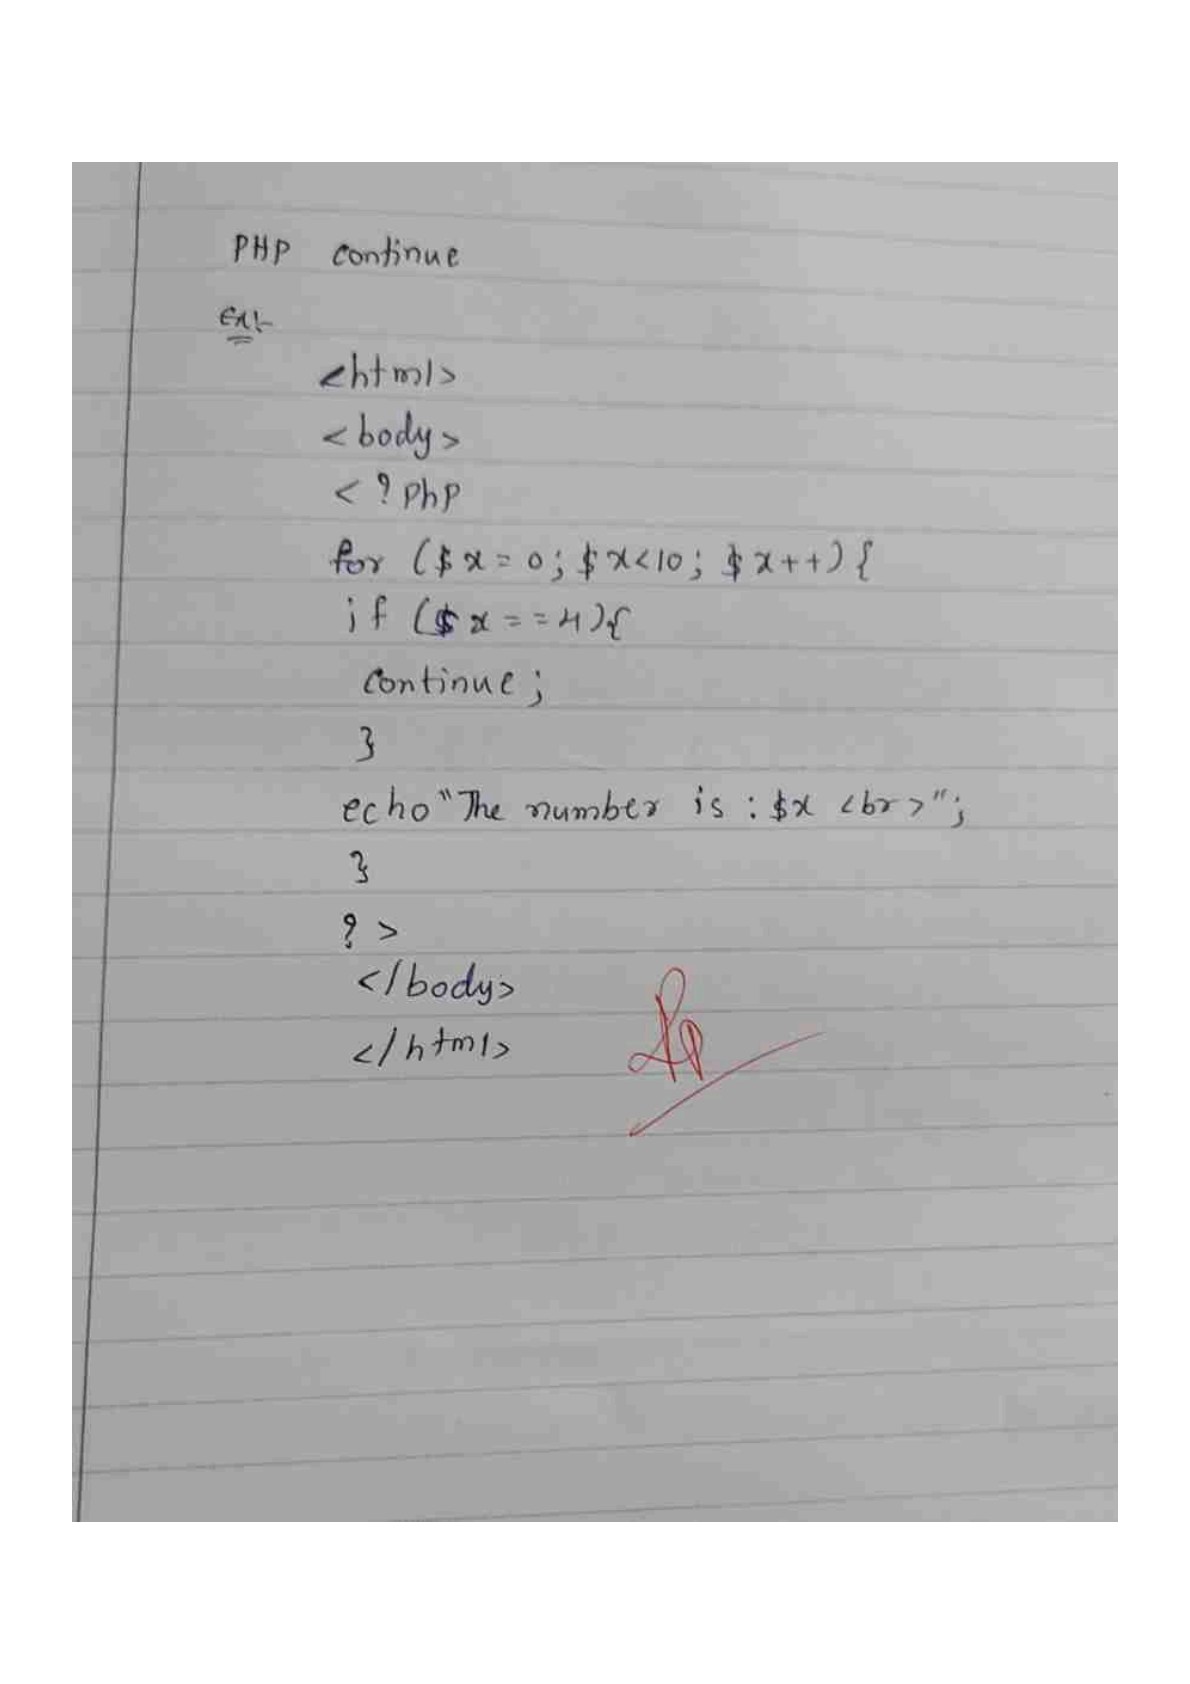 PHP continue
Ex:-
<html>
<body>
<?php
for ($x=0; $x<10; $x++){
if ($x==4){
continue;
}
echo"The number is : $x <br>";
}
?>
</body>
</html>